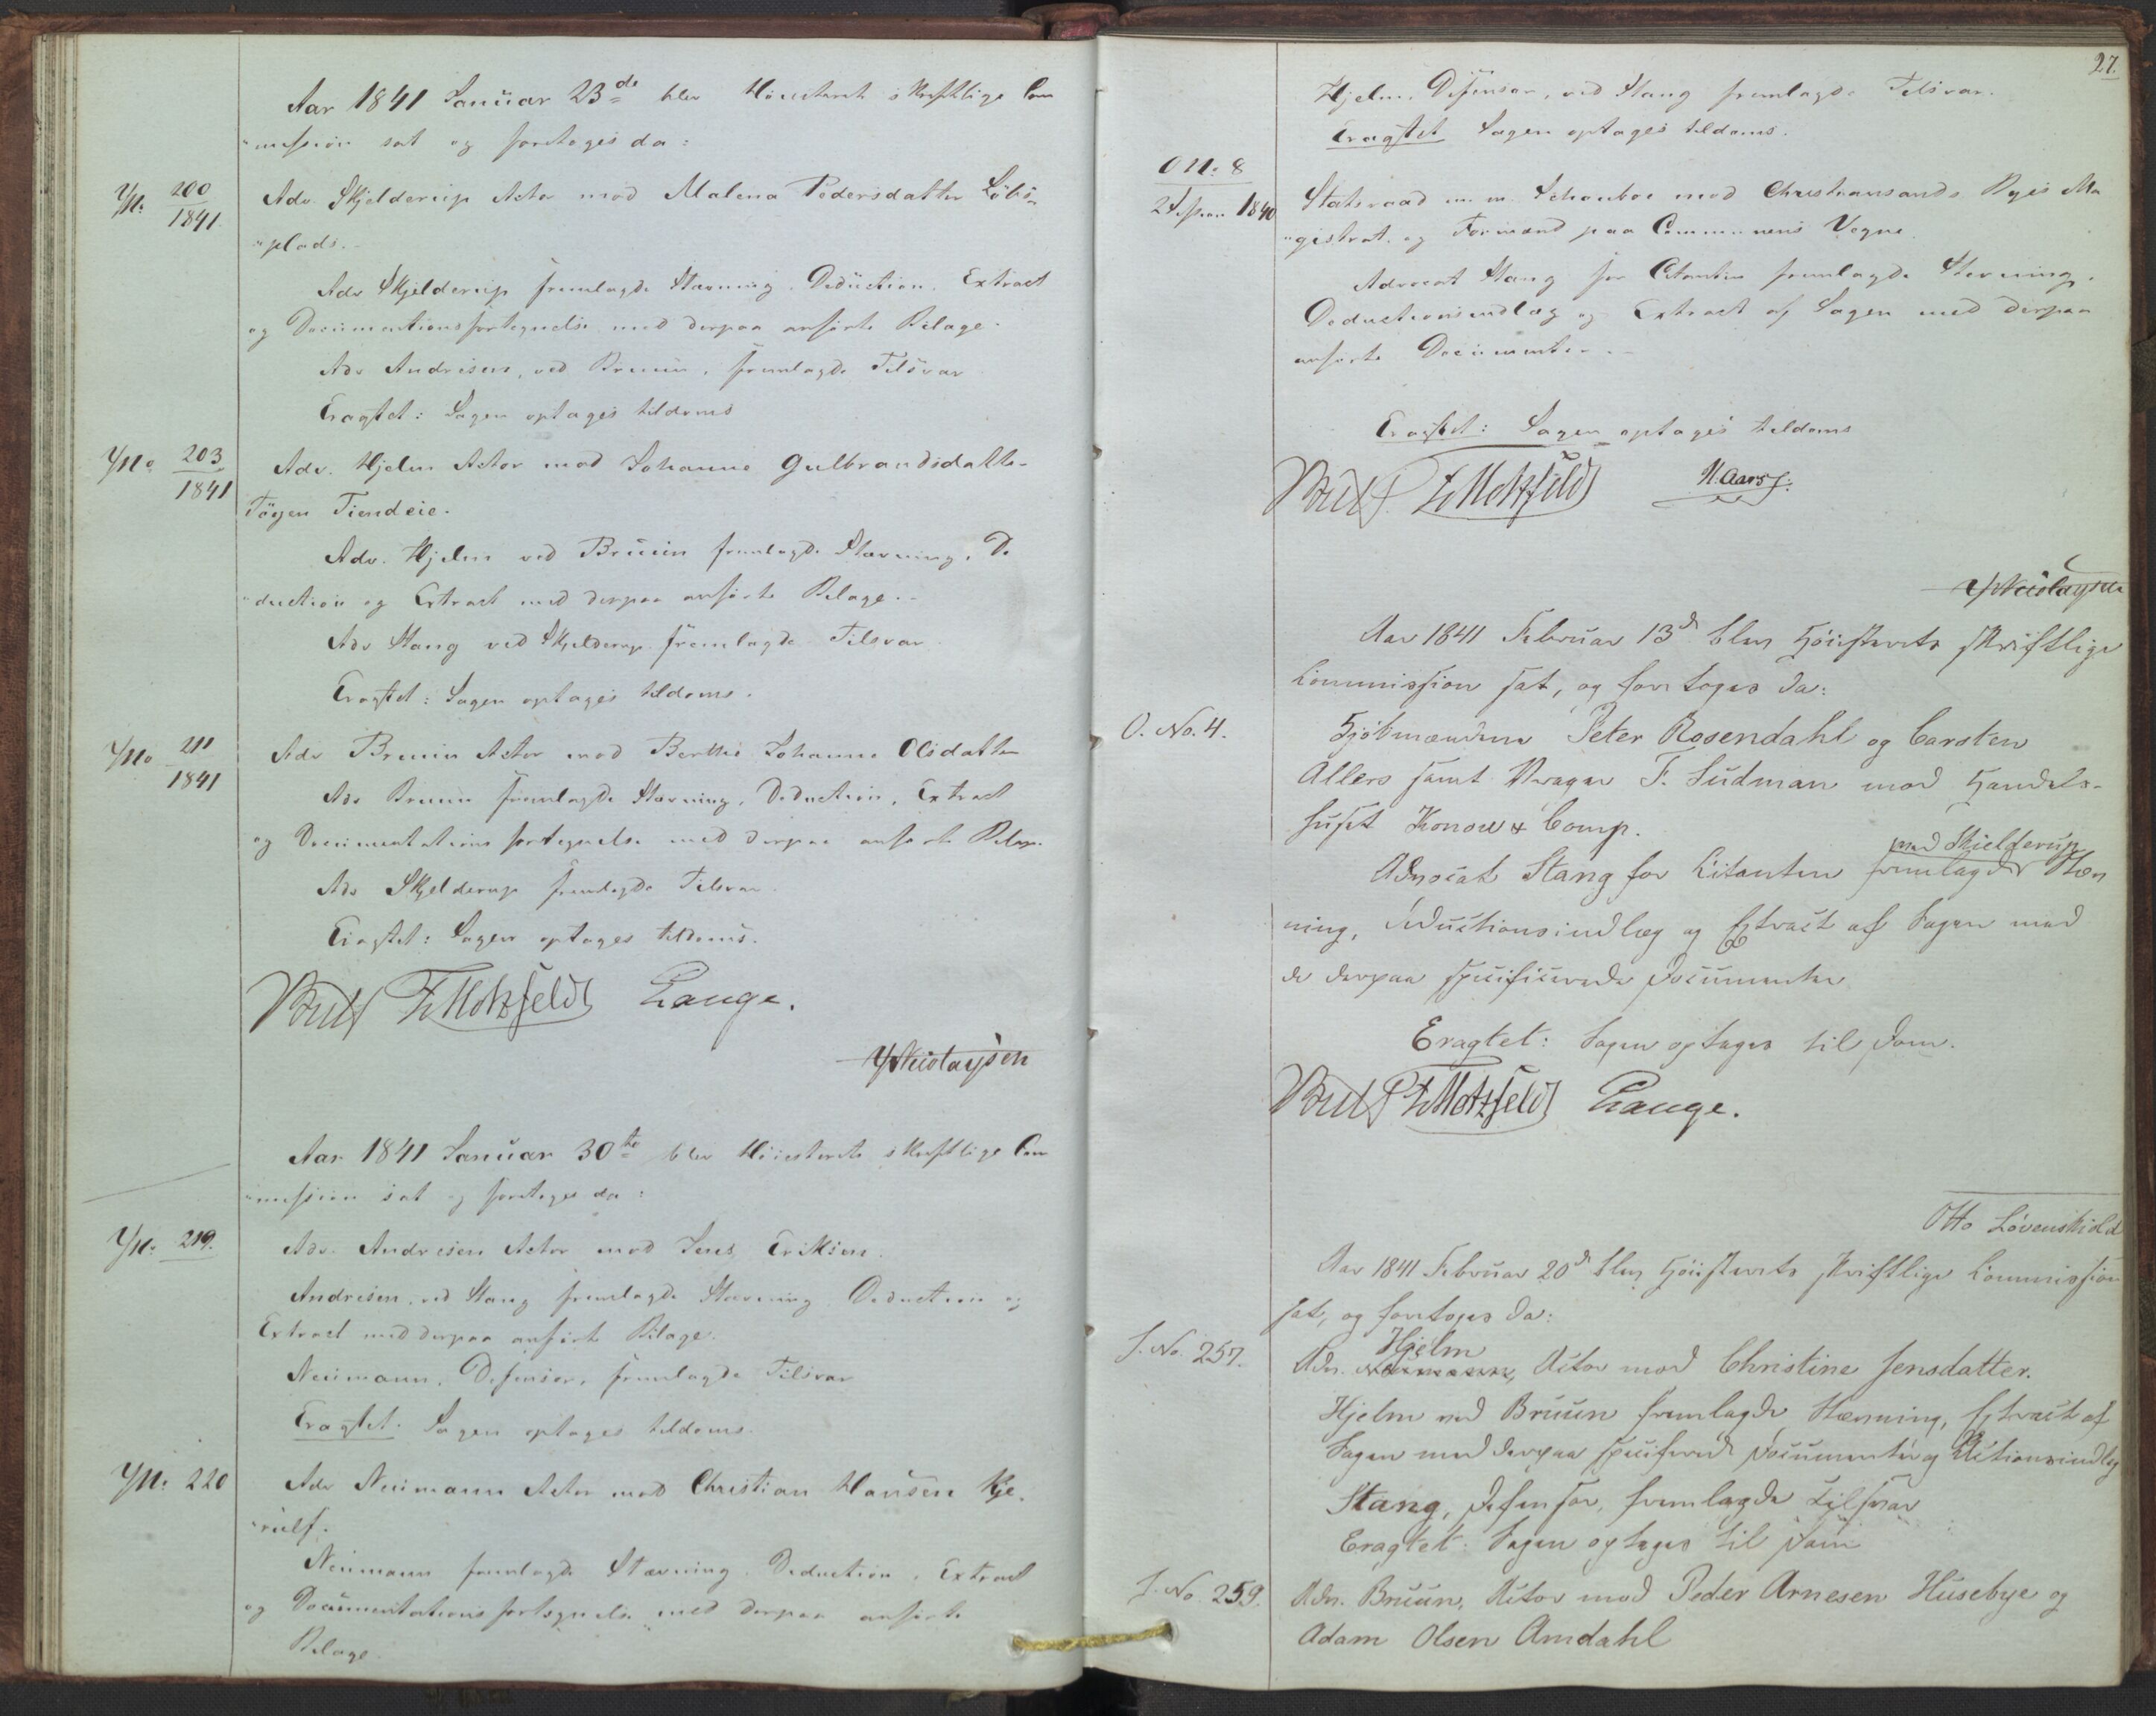 Aar 1841 Januar 23de blev Höiesterets skriftlige Com
"mission sat og foretoges da:
J.N. 200/1841 Adv. Skjelderup Actor mod Malena Pedersdatter Löbs-
"plads.
Adv Skjelderup fremlagde Stævning, Deduction, Extract
og Documentationsfortegnelse med derpaa anførte Bilage.
Adv Andresen, ved Bruun, fremlagde Tilsvar
Eragtet: Sagen optages tildoms
J.No 203/1841 Adv. Hjelm Actor mod Johanne Gulbrandsdatter
Töyen Fiendeie.
Adv. Hjelm ved Bruun fremlagde Stævning, De
"duction og Extract med derpaa anførte Bilage.
Adv Stang ved Skjelderup fremlagde Tilsvar
Eragtet: Sagen optages tildoms.
J.No 211/1841 Adv Bruun Actor mod Berthe Johanne Olsdatter
Adv Bruun fremlagde Stævning, Deduction, Extract
og Documentationsfortegnelse med derpaa anførte Bilage.
Adv Skjelderup fremlagde Tilsvar
Eragtet: Sagen optages tildoms.
Bull FMotzfeldt Lange.
Nicolaysen
Aar 1841 Januar 30te blev Höiesterets skriftlige Com
"mission sat og foretoges da:
J.N. 219. Adv. Andresen Actor mod Jens Eriksen.
Andresen, ved Stang fremlagde Stævning, Deduction og
Extract med derpaa anførte Bilage.
Neumann, Defensor, fremlagde Tilsvar
Eragtet. Sagen optages tildoms.
J.N. 220 Adv Neumann Actor mod Christian Hansen Kje-
"rulf.
Neumann fremlagde Stævning, Deduction, Extract
og Documentationsfortegnelse med derpaa anførte
Bilage.
27.
Hjelm, Defensor, ved Stang fremlagde Tilsvar.
Eragtet Sagen optages tildoms.
O N: 8
2den Session 1840 Statsraad m. m. Schouboe mod Christiansands Byes Ma
"gistrat og Formænd paa Communens Vegne.
Advocat Stang for Citanten fremlagde Stævning,
Deductionsindlæg og Extract af Sagen med derpaa
anførte Documenter.
Eragtet: Sagen optages tildoms
Bull. FMotzfeldt N. Aars.
Nicolaysen
Aar 1841 Februar 13de blev Höiesterets skriftlige
Commission sat, og foretoges da:
O. No. 4. Kjöbmændene Peter Rosendahl og Carsten
Allers samt Vrager F. Sudman mod Handels-
huset Konow & Comp.
Advocat Stang for Citanten ved Skielderup fremlagde Stæv
ning, Deductionsindlæg og Extract af Sagen med
de derpaa specificerede Documenter
Eragtet: Sagen optages til Dom.
Bull FMotzfeldt Lange.
Otto Lövenskiold
Aar 1841 Februar 20de blev Höiesterets skriftlige Commission
sat, og foretoges da:
J. No. 257. Adv. Neumann, Hjelm Actor mod Christine Jensdatter.
Hjelm ved Bruun fremlagde Stævning, Extract af
Sagen med derpaa specificerede Documenter og Actionsindlæg
Stang, Defensor, fremlagde Tilsvar
Eragtet: Sagen optages til Dom
J. No. 259. Adv. Bruun, Actor mod Peder Arnesen Husebye og
Adam Olsen Amdahl